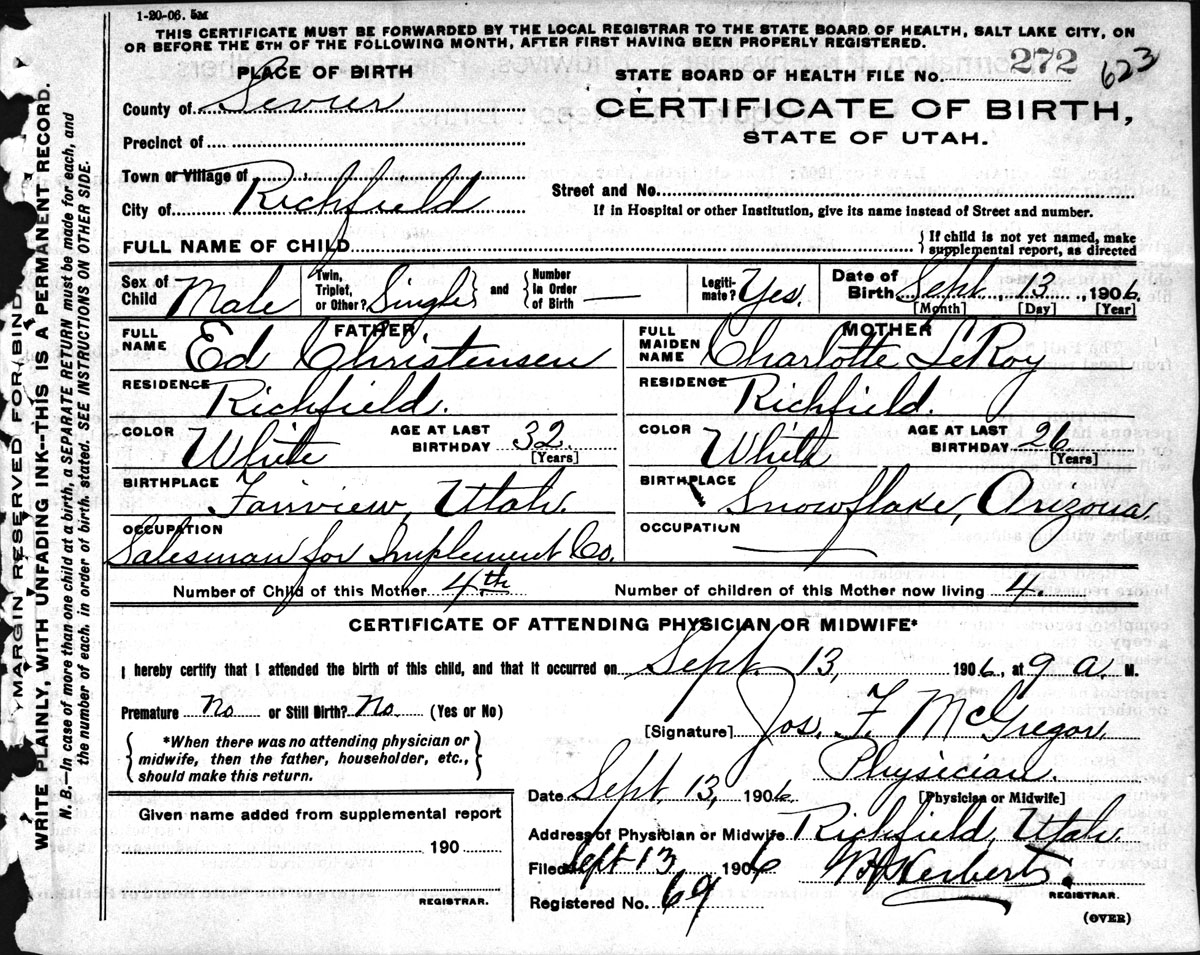 1-20-06. 5M
THIS CERTIFICATE MUST BE FORWARDED BY THE LOCAL REGISTRAR TO THE STATE BOARD OF HEALTH, SALT LAKE CITY, ON
OR BEFORE THE 5TH OF THE FOLLOWING MONTH, AFTER FIRST HAVING BEEN PROPERLY REGISTERED.
MARGIN RESERVED FOR BIND
WRITE PLAINLY, WITH UNFADING INK--THIS IS A PERMANENT RECORD.
N. B.—In case of more than one child at a birth, a SEPARATE RETURN must be made for each, and
the number of each, in order of birth, stated. SEE INSTRUCTIONS ON OTHER SIDE.
PLACE OF BIRTH
County of Sevier
Precinct of
Town or Village of
City of Richfield
STATE BOARD OF HEALTH FILE No. 272 623
CERTIFICATE OF BIRTH,
STATE OF UTAH.
Street and No.
If in Hospital or other Institution, give its name instead of Street and number.
FULL NAME OF CHILD { If child is not yet named, make
supplemental report, as directed
Sex of Child Male
Twin, Triplet, or Other? Single } and { Number In Order of Birth —
Legitimate? Yes
Date of Birth Sept, 13, 1906.
[Month] [Day] [Year]
FATHER
FULL NAME Ed Christensen
RESIDENCE Richfield.
COLOR White AGE AT LAST BIRTHDAY 32.
[Years]
BIRTHPLACE Fairview, Utah.
OCCUPATION
Salesman for Implement Co.
MOTHER
FULL MAIDEN NAME Charlotte LeRoy
RESIDENCE Richfield.
COLOR White AGE AT LAST BIRTHDAY 26.
[Years]
BIRTHPLACE Snowflake, Arizona.
OCCUPATION —
Number of Child of this Mother 4th Number of children of this Mother now living 4.
CERTIFICATE OF ATTENDING PHYSICIAN OR MIDWIFE*
I hereby certify that I attended the birth of this child, and that it occurred on Sept. 13, 1906, at 9 a. M.
Premature No or Still Birth? No. (Yes or No)
{ *When there was no attending physician or
midwife, then the father, householder, etc.,
should make this return. }
[Signature] Jos. F. McGregor,
Physician.
[Physician or Midwife]
Date Sept, 13, 1906.
Address of Physician or Midwife Richfield, Utah.
Filed Sept 13 1906
Registered No. 69
REGISTRAR.
(OVER)
Given name added from supplemental report
190
REGISTRAR.